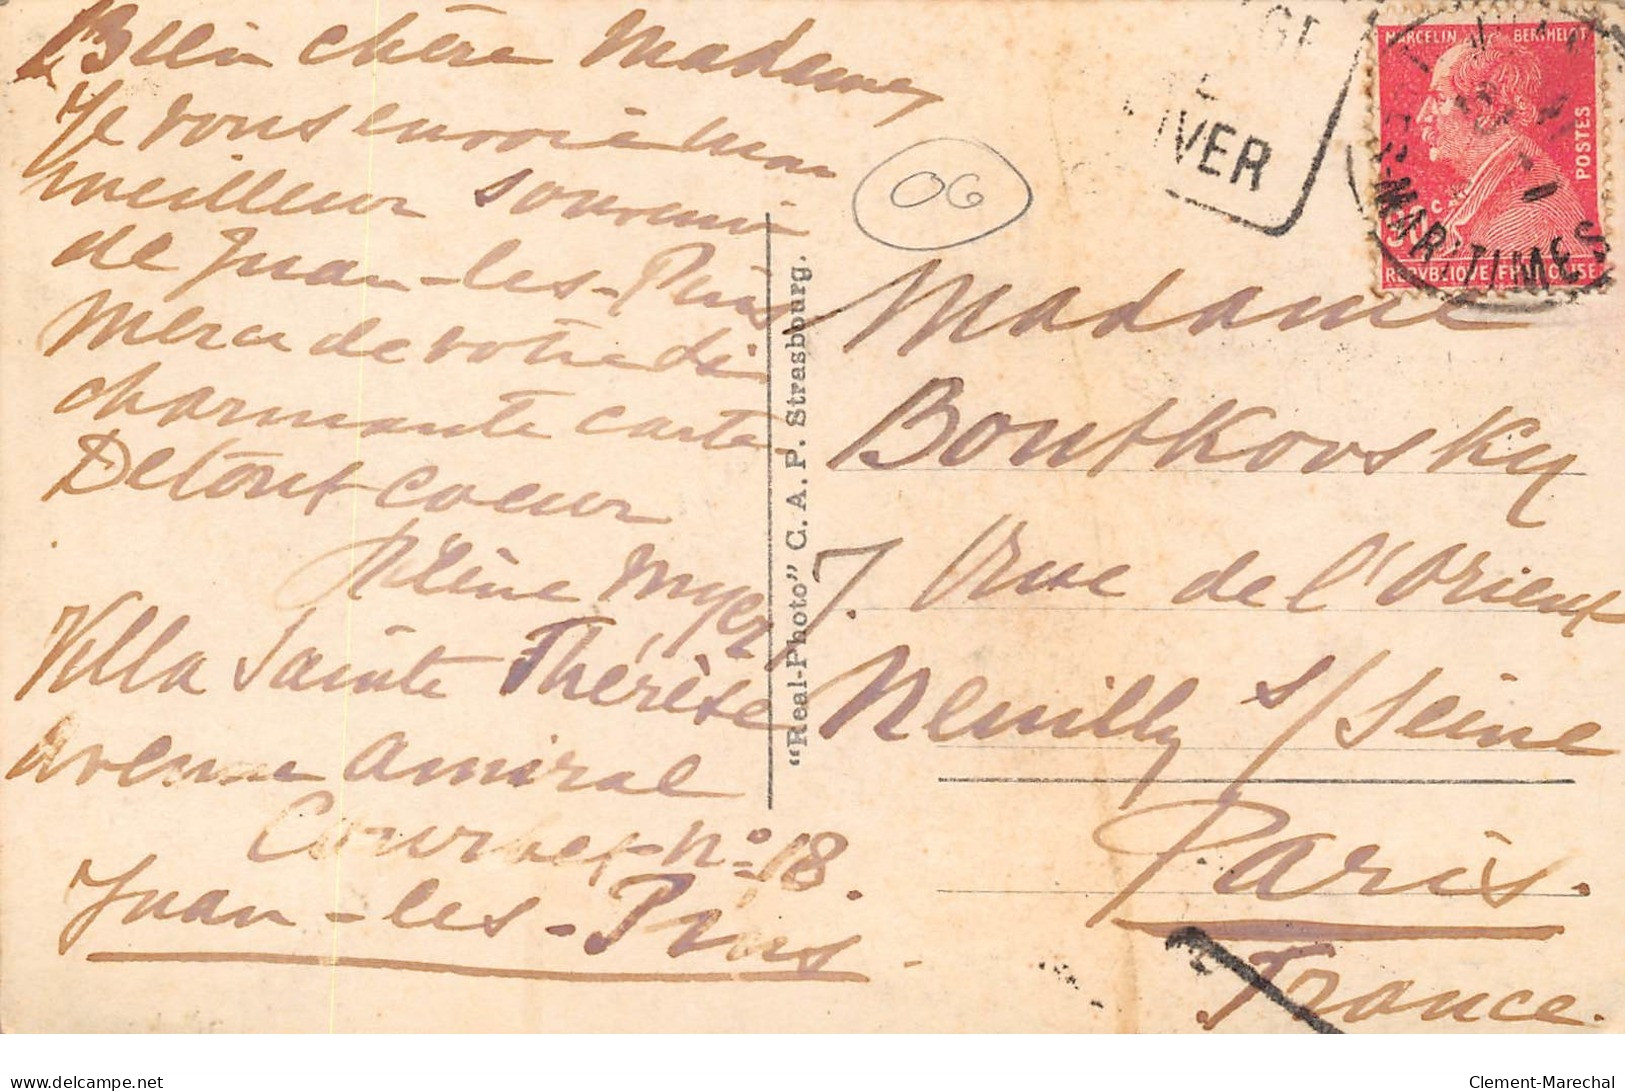 Bien chère Madame,
Je vous envoie mon
meilleur souvenir
de Juan-les-Pins
Merci de votre si
charmante carte
De tout coeur
Hélène Myer
Villa Sainte Thérèse
Avenue Amiral
Courbet No 18.
Juan-les-Pins
"Real-Photo" C. A. P. Strasbourg.
06
IVER
MARCELIN BERTHELOT
POSTES
REPVBLIQVE FRANCAISE
MARITIMES
Madame
Boutkovsky
7. Rue de l'Orient
Neuilly s/Seine
Paris.
France.
delcampe.net
Clement-Marechal